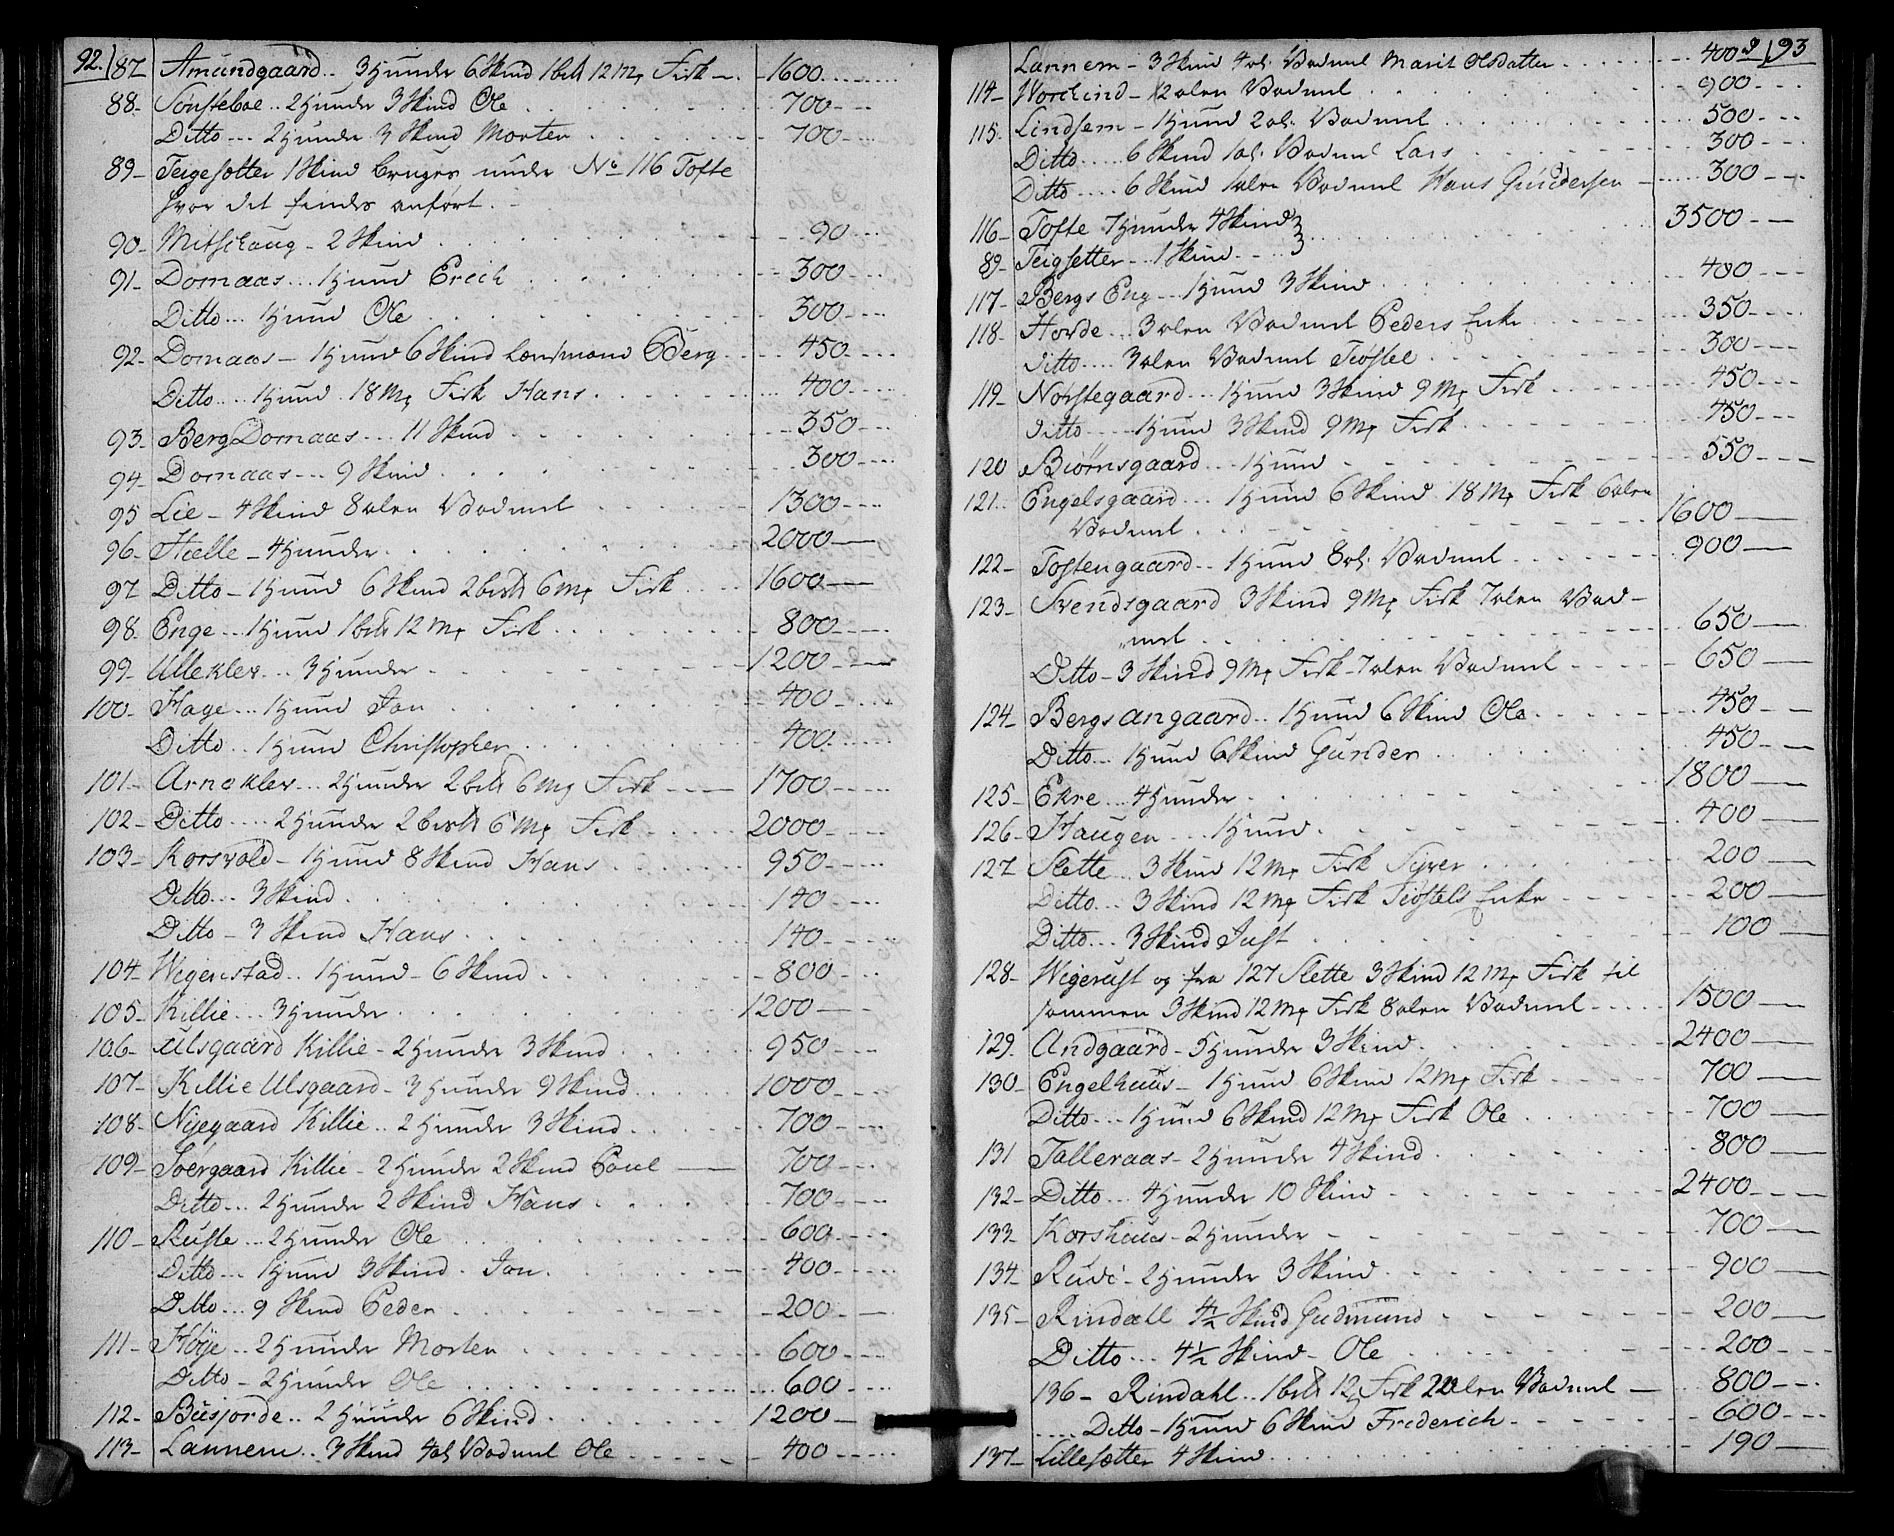 92.
87 Amundgaard.. 3 Hunder 6 Skind 1 bsl 12 Mp Fisk - 1600
88 - Sønsteboe.. 2 Hunder 3 Skind Ole 700
Ditto... 2 Hunder 3 Skind Morten 700
89 - Teigesætter 1 Skind bruges under No 116 Tofte
hvor det findes anført.
90 - Mitshaug - 2 Skind 90
91 - Domaas... 1 Hund Erich 300
Ditto... 1 Hund Ole 300
92 - Domaas - 1 Hund 6 Skind Lensmand Berg 450
Ditto... 1 Hund 18 Mp Fisk Hans 400
93 - Berg Domaas... 11 Skind 350
94 - Domaas... 9 Skind 300
95 Lie - 4 Skind 8 alen Vadmel 1300
96 - Hielle - 4 Hunder 2000
97 Ditto - 1 Hund 6 Skind 2 bsl 6 Mp Fisk 1600
98 - Enge... 1 Hund 1 bsl 12 Mp Fisk 800
99 - Ulleklev... 3 Hunder 1200
100 - Hage... 1 Hund Jon 400
Ditto.. 1 Hund Christopher 400
101 - Arneklev... 2 Hunder 2 bsl 6 Mp Fisk 1700
102 - Ditto.... 2 Hunder 2 bsl 6 Mp Fisk 2000
103 - Korsvold - 1 Hund 8 Skind Hans 950
Ditto... 3 Skind 140
Ditto - 3 Skind Hans 140
104 - Wigenstad.. 1 Hund - 6 Skind 800
105 - Killie... 3 Hunder 1200
106 - Ulsgaard Killie - 2 Hunder 3 Skind 950
107 - Killie Ulsgaard - 3 Hunder 9 Skind 1000
108 - Nijegaard Killie.. 2 Hunder 3 Skind 700
109 - Søergaard Killie - 2 Hunder 2 Skind Poul 700
Ditto... 2 Hunder 2 Skind Hans 700
110 - Ruste... 2 Hunder Ole 600
Ditto... 1 Hund 3 Skind Jon 400
Ditto... 9 Skind Peder 200
111 - Høye.. 2 Hunder Morten 600
Ditto - 2 Hunder Ole 600
112 - Büsjorde.. 2 Hunder 6 Skind 1200
113 - Lannem.. 3 Skind 4 al Vadmel Ole 400
93
Lannem - 3 Skind 4 al. Vadmel Marit Olsdatter 400
114 - - 12 alen Vadmel 900
115. Lindsem - 1 Hund 2 al. Vadmel 500
Ditto..... 6 Skind 1 al. Vadmel Lars 300
Ditto.... 6 Skind 1 alen Vadmel Hans Gundersen 300
116 - Tofte 7 Hunder 4 Skind 3500
89 - Teigsetter - 1 Skind
117 - Bergs Eng... 1 Hund 3 Skind 400
118 - Hovde... 3 alen Vadmel Peders Enke 350
Ditto.... 3 alen Vadmel Tiøstel 300
119 - Norstegaard... 1 Hund 3 Skind 9 Mp Fisk 450
Ditto.... 1 Hund 3 Skind 9 Mp Fisk 450
120 Biørnsgaard... 1 Hund 550
121.. Engelsgaard... 1 Hund 6 Skind 18 Mp Fisk 6 alen
Vadmel 1600
122 - Tostengaard.. 1 Hund 8 al. Vadmel 900
123 - Svendsgaard 3 Skind 9 Mp Fisk 7 alen Vad-
mel 650
Ditto - 3 Skind 9 Mp Fisk - 7 alen Vadmel 650
124 - Bergs angaard.. 1 Hund 6 Skind Ole 450
Ditto... 1 Hund 6 Skind Gunder 450
125 - Ekre... 4 Hunder 1800
126 - Haugen... 1 Hund 400
127 Slette... 3 Skind 12 Mp Fisk Syver 200
Ditto... 3 Skind 12 Mp Fisk Tiøstels Enke 200
Ditto... 3 Skind Just 100
128 - Wigerust og fra 127 Slette 3 Skind 12 Mp Fisk til
sammen 3 Skind 12 Mp Fisk 8 alen Vadmel 1500
129. Andgaard - 5 Hunder 3 Skind 2400
130 - Engelhuus - 1 Hund 6 Skind 12 Mp Fisk 700
Ditto... 1 Hund 6 Skind 12 Mp Fisk Ole 700
131 Talleraas - 2 Hunder 4 Skind 800
132 - Ditto... 4 Hunder 10 Skind 2400
133 - Korshuus - 2 Hunder 700
134 - Rudi - 2 Hunder 3 Skind 900
135 - Rindahl 4½ Skind Gudmund 200
Ditto... 4½ Skind - Ole 200
136 - Rindahl.. 1 bsl 12 Fisk 2 alen Vadmel 800
Ditto - 1 Hund 6 Skind Friderich 600
137 - Lillesætter 4 Skind 190